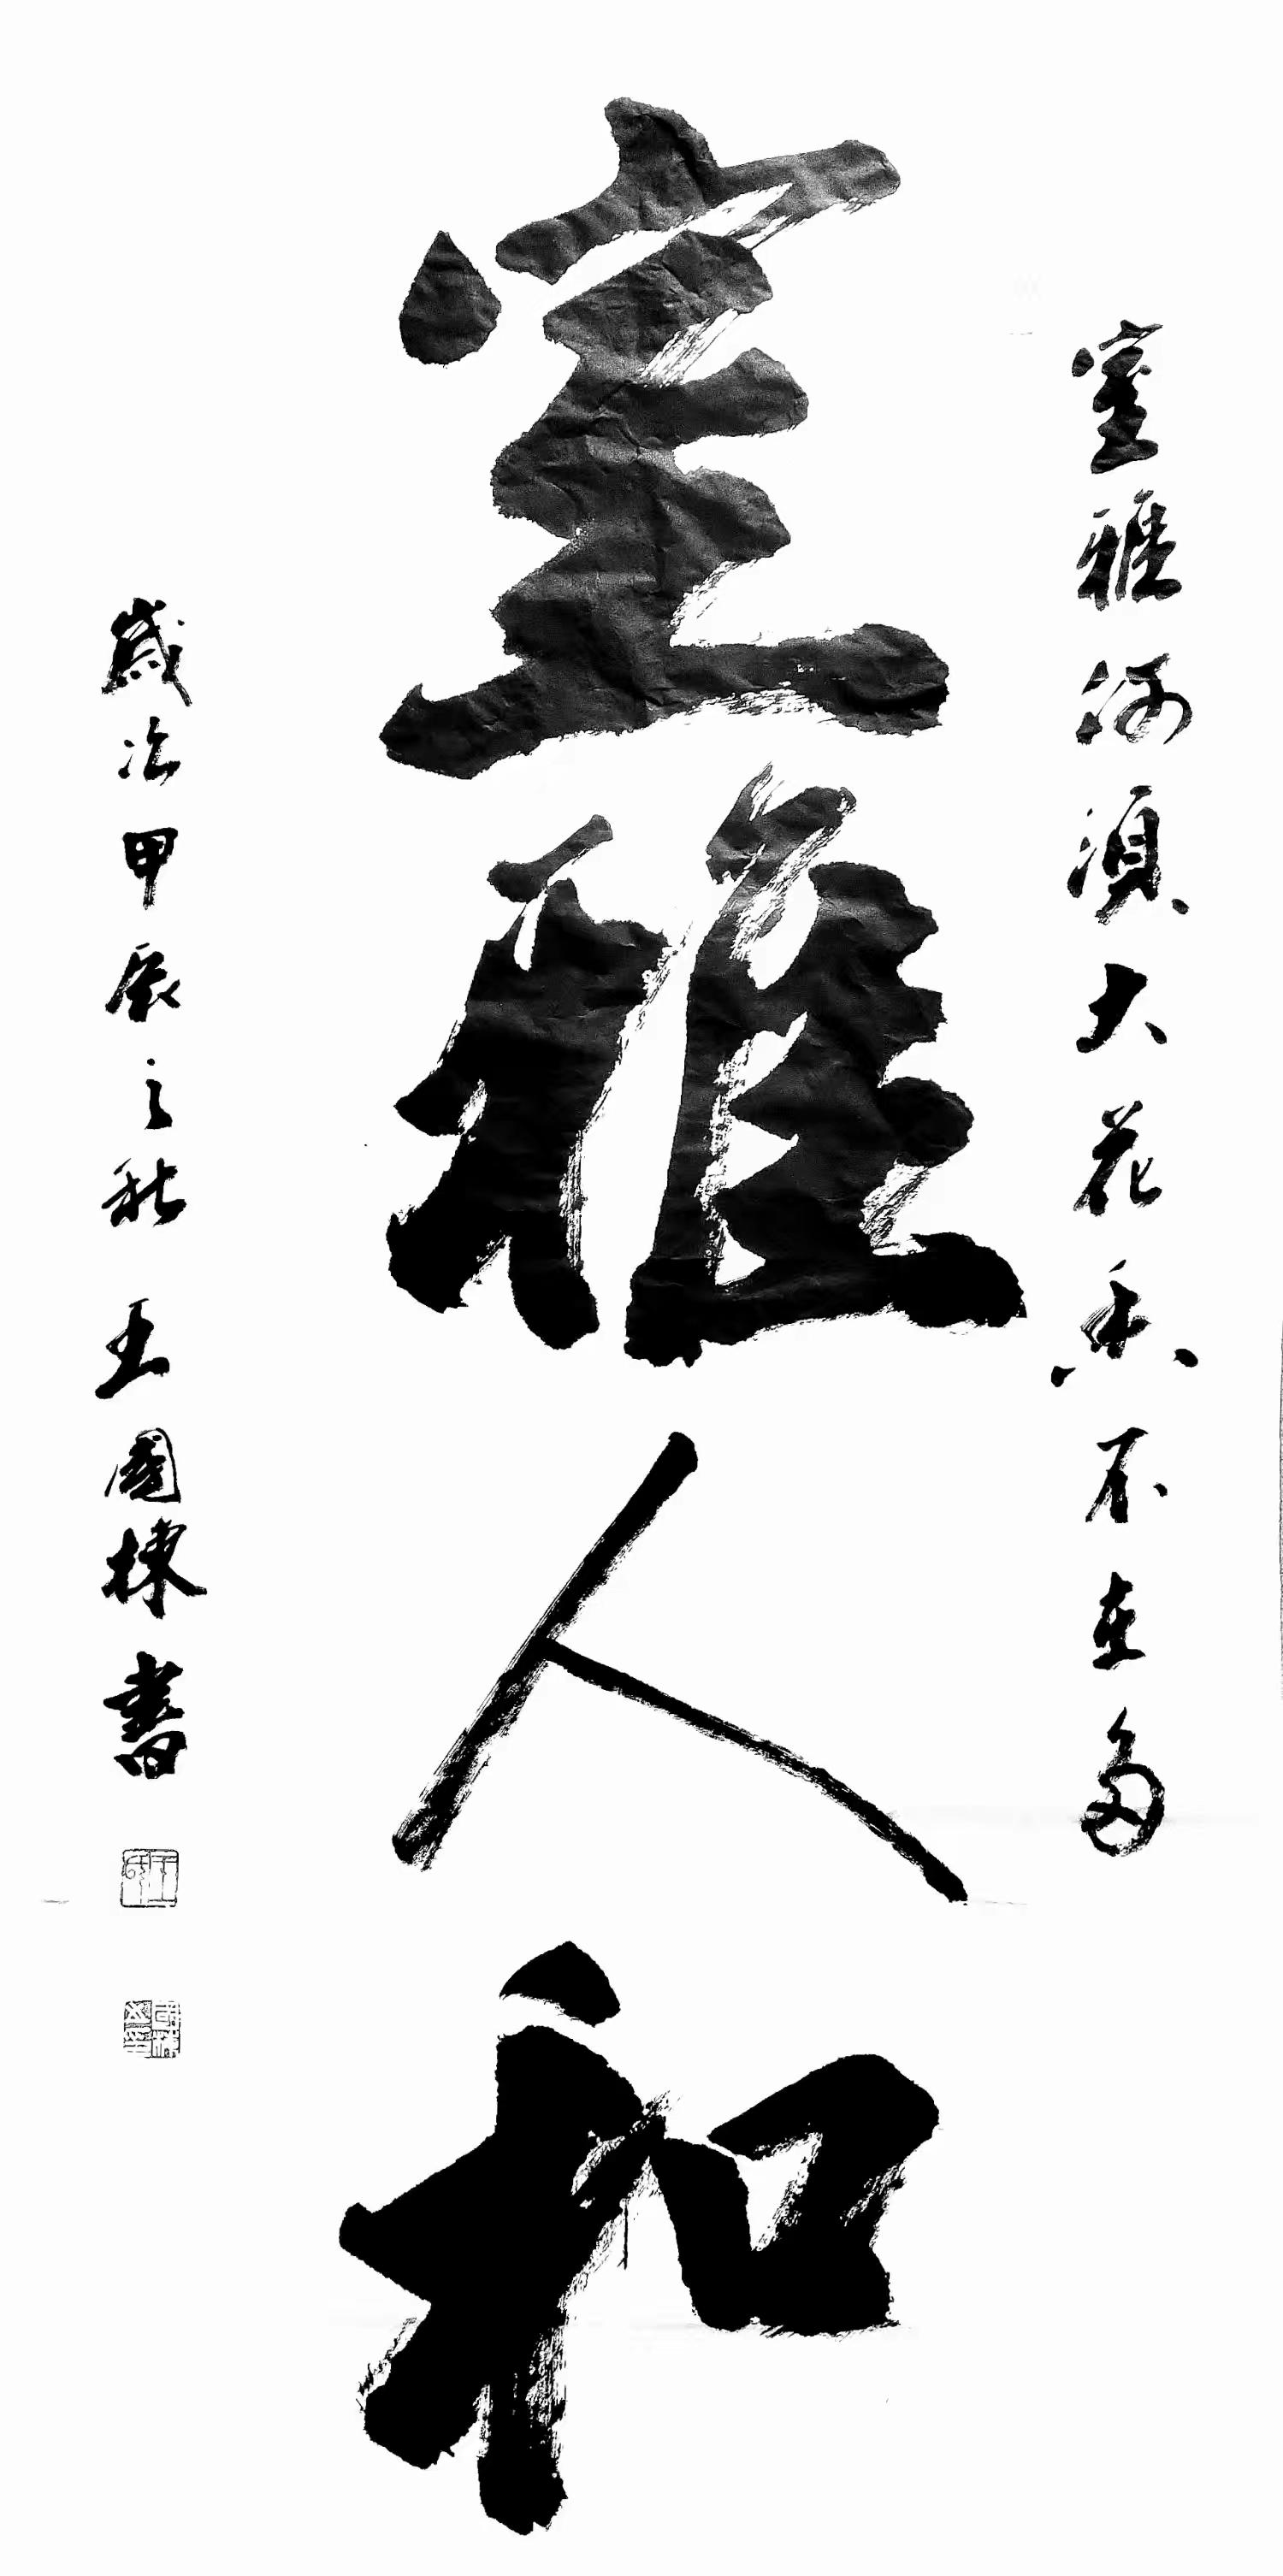 室雅何須大花香不在多
室雅人和
歲次甲辰之秋 王國棟書